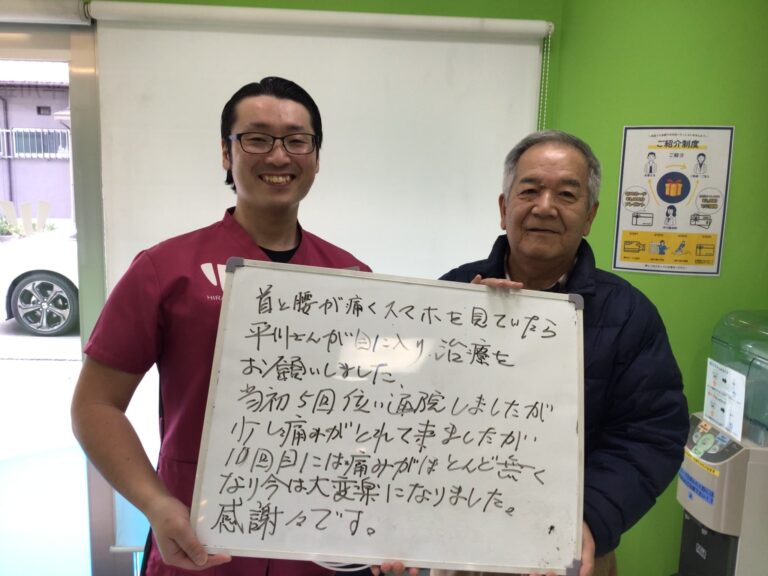 首と腰が痛くスマホを見ていたら
平川さんが目に入り、治療を
お願いしました。
当初5回位い通院しましたが
少し痛みがとれて来ましたが
10回目には痛みがほとんど無く
なり今は大変楽になりました。
感謝々です。
HIRA
ご紹介制度
ご紹介